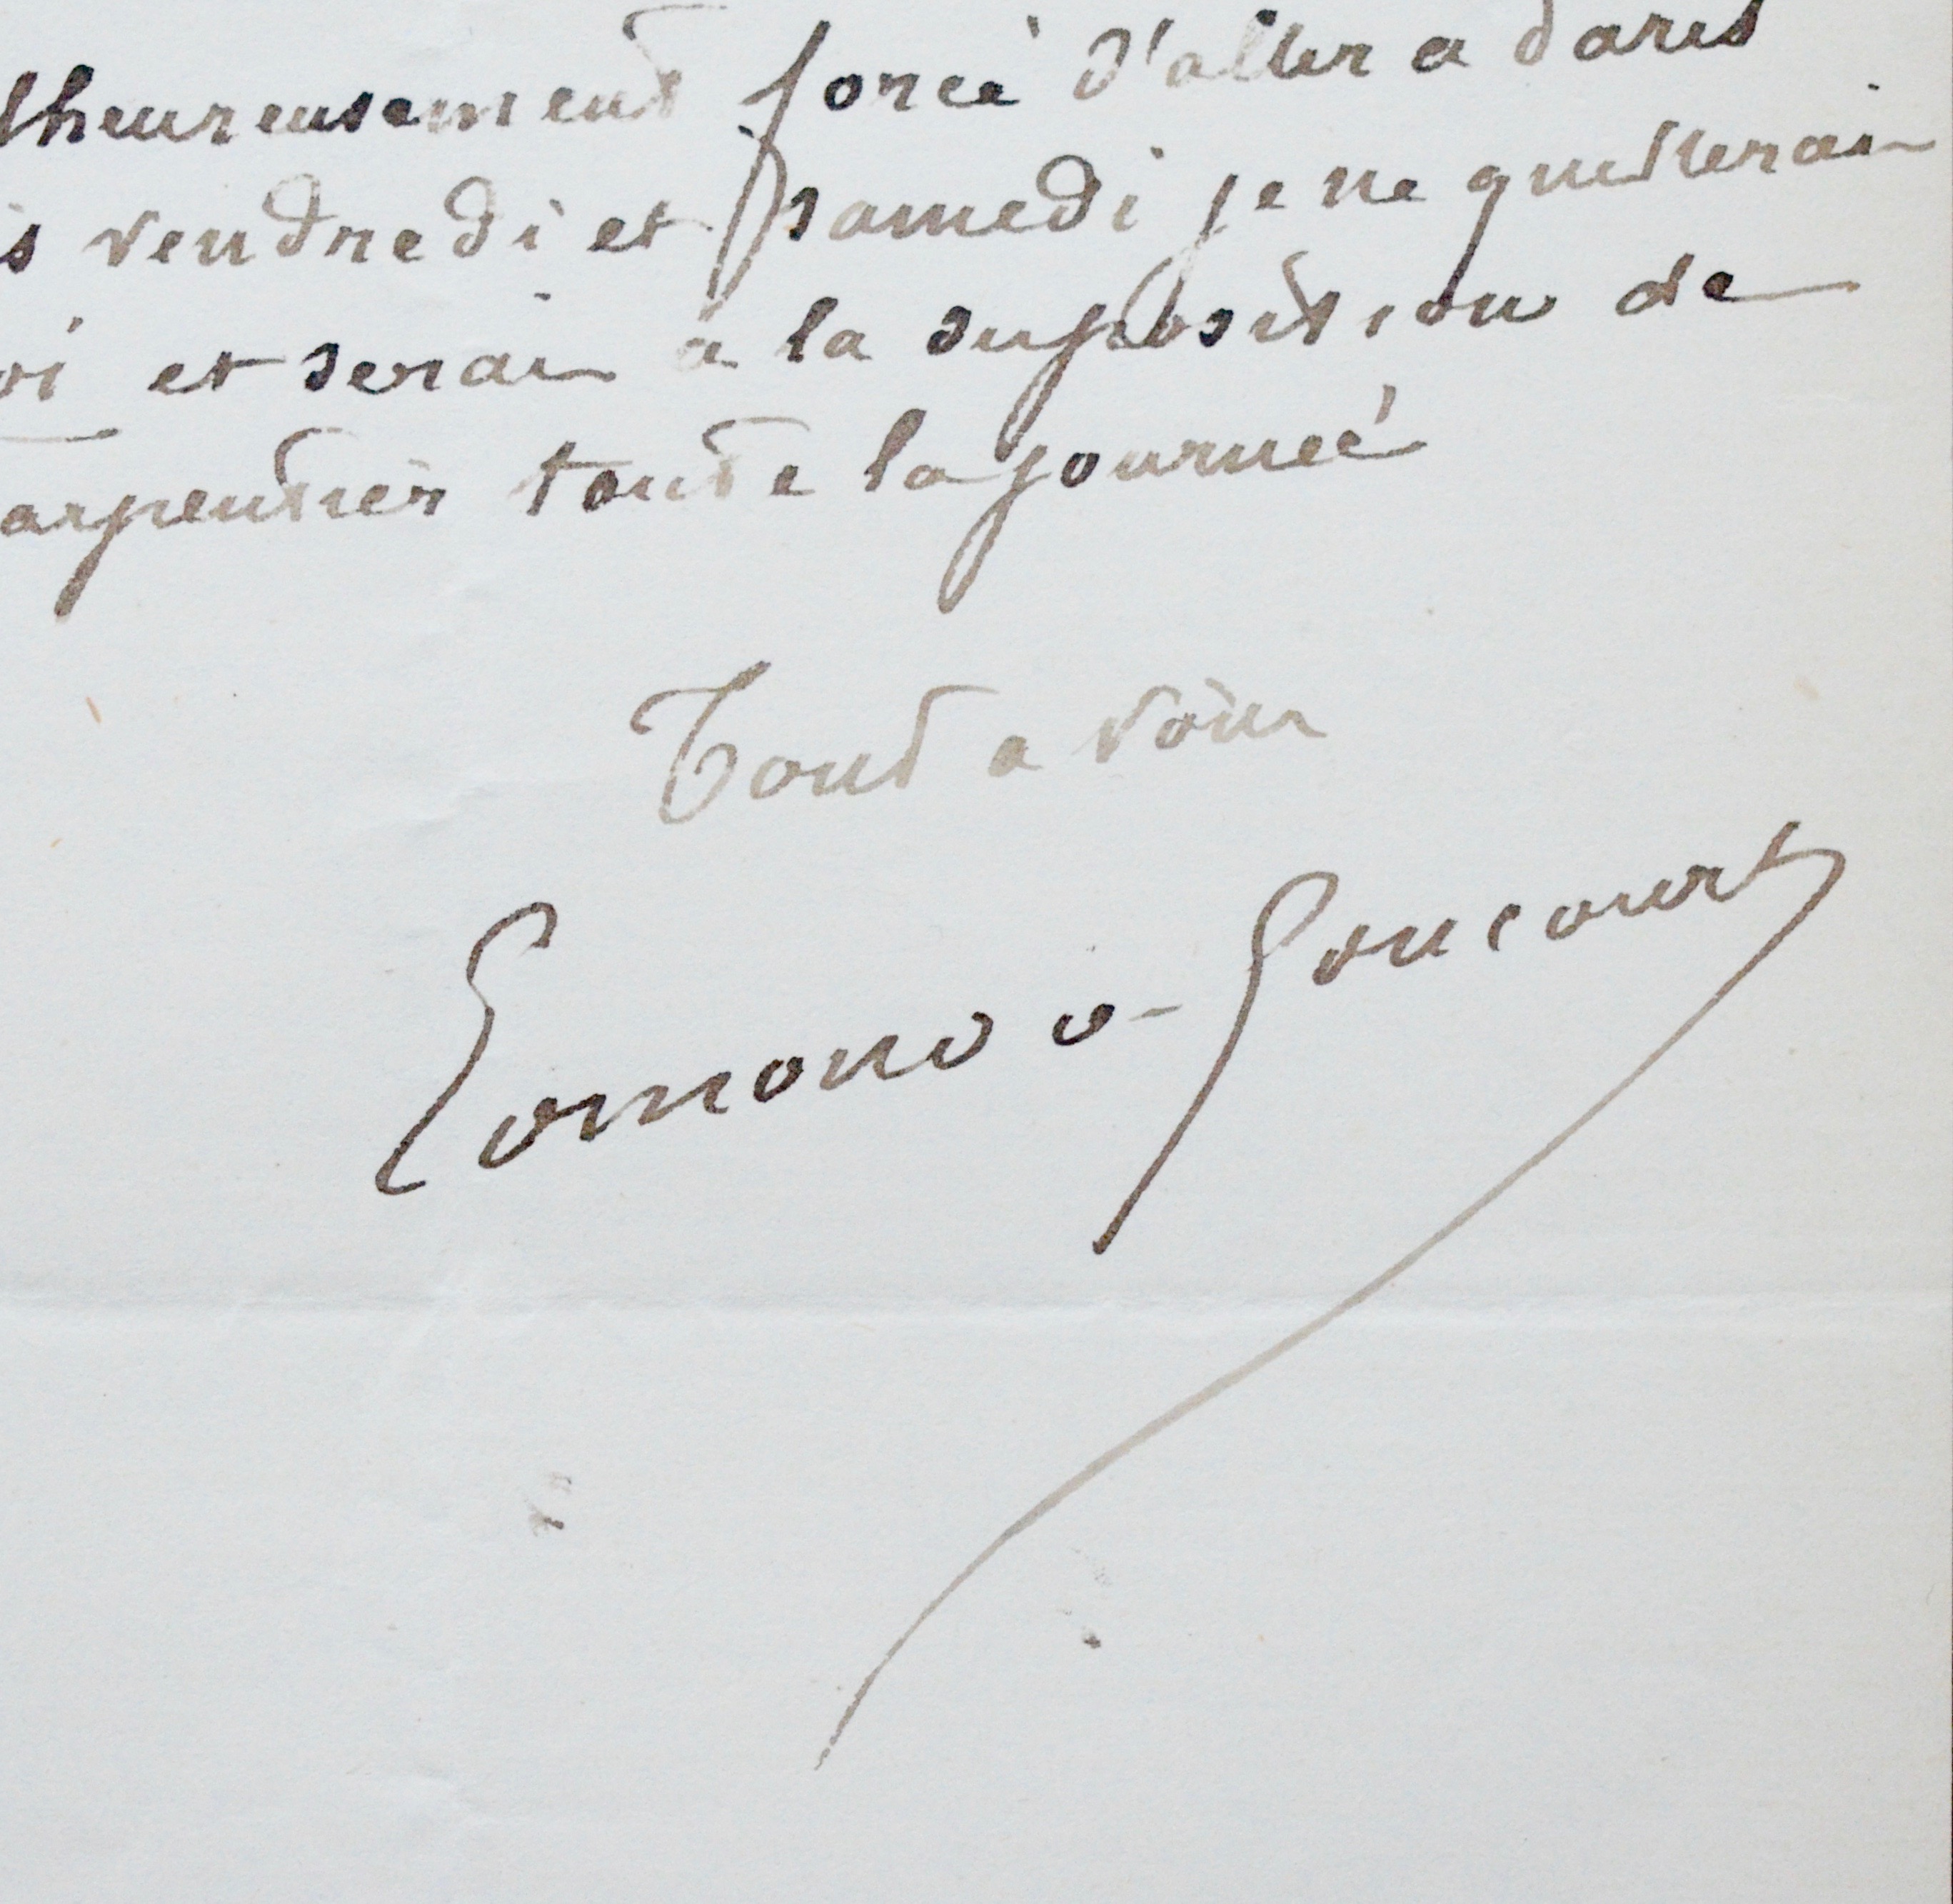 lheureusement forcé d'aller a Paris
is vendredi et samedi je ne quitterai
oi et serai à la disposition de
arpentier toute la journeé
Tout a vous
Edmond de Goncourt